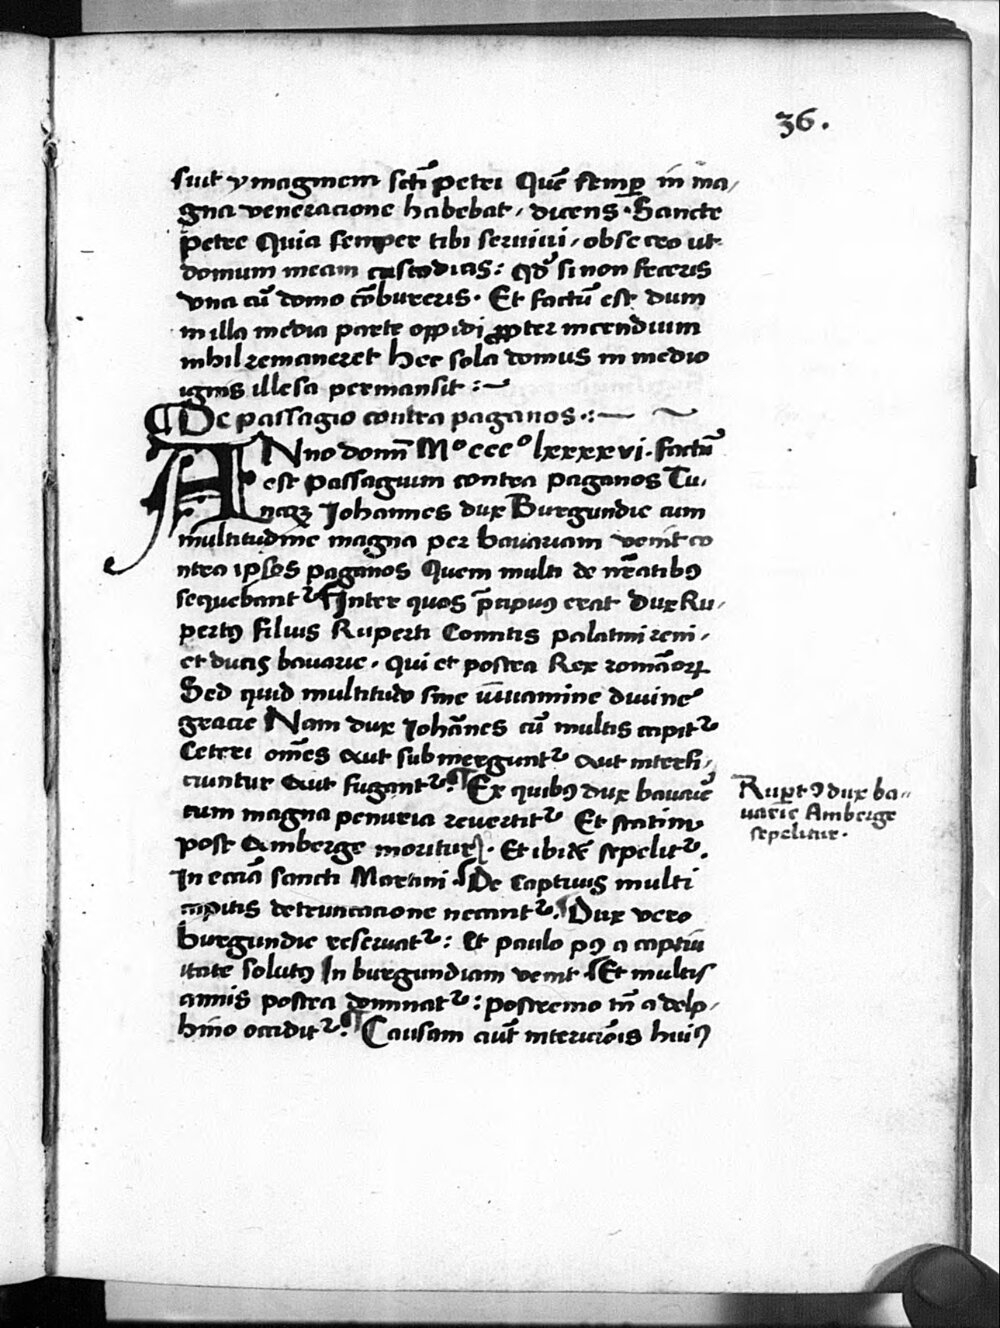 36.
siuit ymaginem scti̅ petri Que̅ semp̲ in ma,
gna veneracione habebat, dicens · Sancte
petre Quia semper tibi seruiui, obsecro ut
domum meam custodias : Qd̛ si non feceris
vna cu̅ domo co̅bureris · Et factu̅ est dum
in illa media parte opp̲idi ꝓpter incendium
nihil remaneret hec sola domus in medio
ignis illesa permansit :~
¶ De passagio contra paganos ·:~ ~
ANno domi̅ Mº cccº lxxxxvi · factu̅
est passagium contra paganos Tu,
ncqꝫ Iohannes dux Burgundie cum
multitudine magna per bauariam venit co
ntra ipsos paganos Quem multi de nr̅atibꝯ
sequebantᷣ ¶ Inter quos p̅cipuꝯ erat dux Ru,
pertꝯ filius Ruperti Comitis palatini reni,
et ducis bauarie, qui et postea Rex roma̅oꝝ
Sed quid multitudo sine iuuamine diuine
gracie Nam dux Ioha̅nes cu̅ multis capitᷣ
Ceteri om̅es aut submerguntᷣ aut interfi,
ciuntur aut fugantᷣ ¶ Ex quibꝯ dux bauarie̅
cum magna penuria reuertitᷣ Et statim
post amberge moritur · Et ibide̅ sepelitᷣ.
In eccia̅ sancti Martini ¶ De captiuis multi
capitis detruncacione necantᷣ ¶ Dux vero
burgundie reseruatᷣ : Et paulo pꝯ a captiu
itate solutꝯ In burgundiam venit ¶ Et multis
annis postea dominatᷣ : postremo tn̅ a delp,
hino occiditᷣ ¶ Causam aut̅ interic̅ois huiꝯ
Rup̲tꝯ dux ba,,
uarie Amberge
sepelitur ·